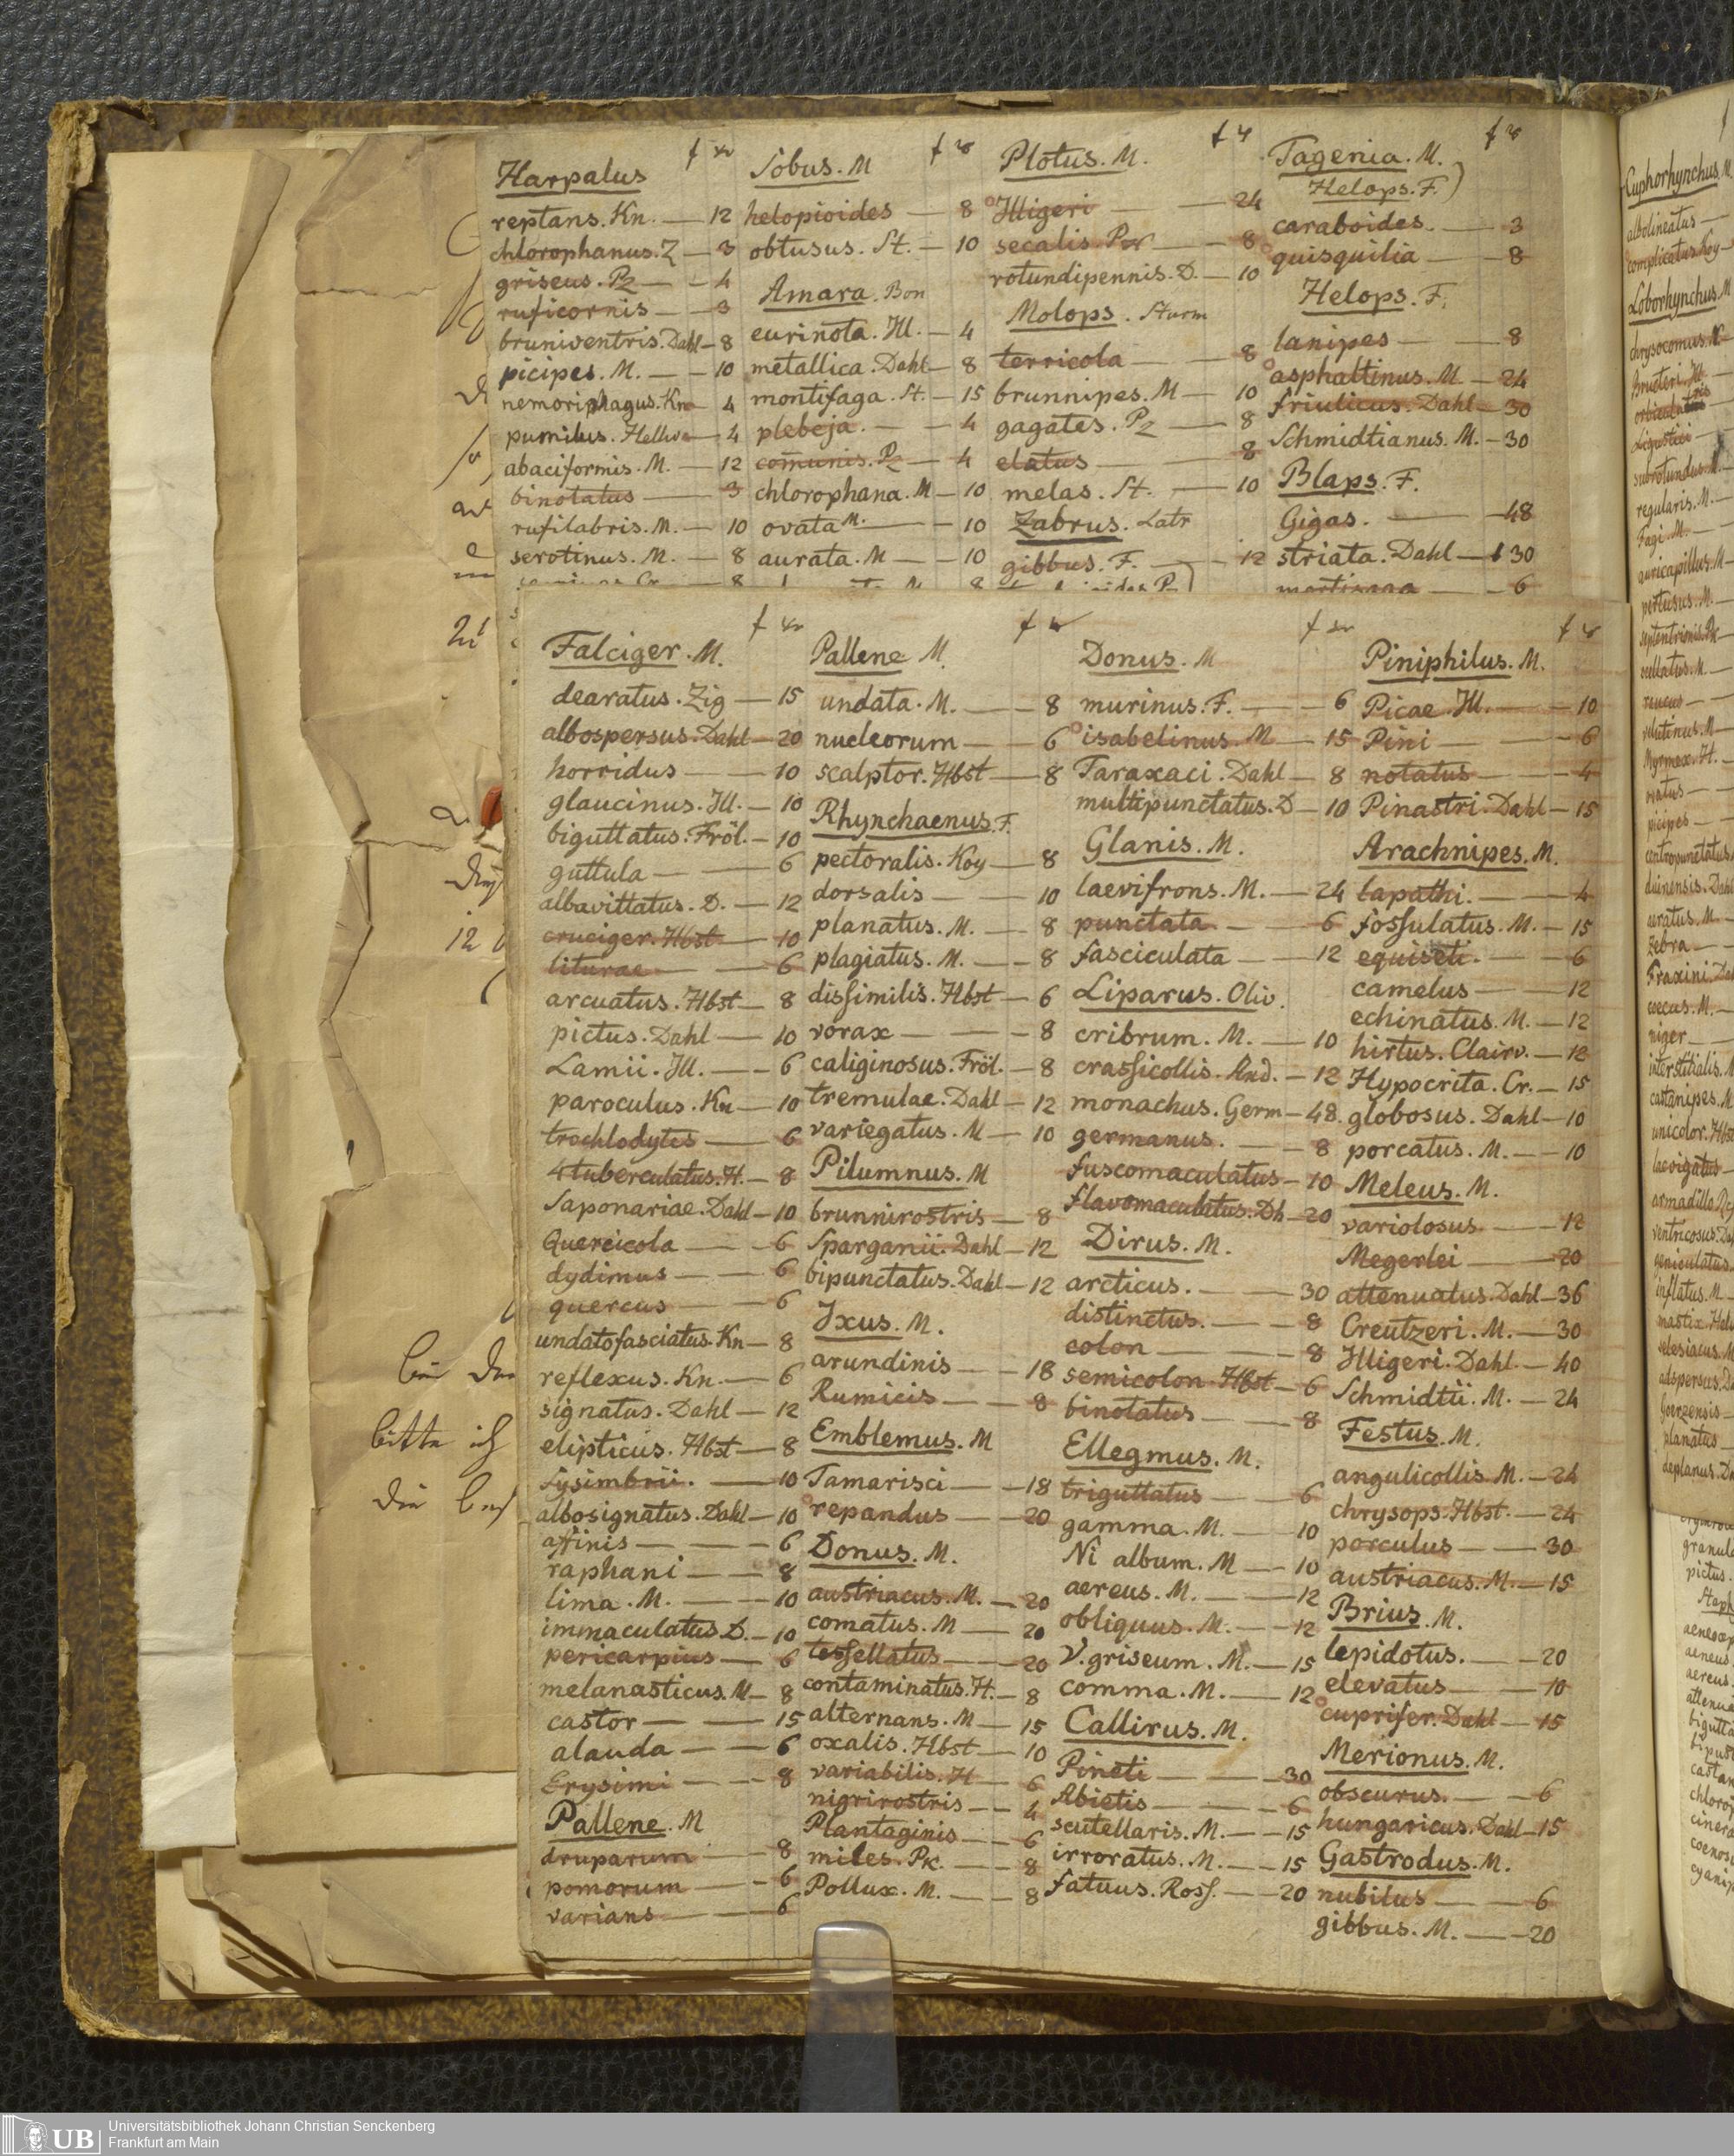 Harpalus
reptans. Kn. — 12
chlorophanus. Z — 3
griseus. Pz — 4
ruficornis — 3
bruniventris. Dahl — 8
picipes. M. — 10
nemoriphagus. Kn — 4
pumilus. Hellw — 4
abaciformis. M. — 12
binotatus — 3
rufilabris. M. — 10
serotinus. M. — 8
Sobus. M
helopioides — 8
obtusus. St. — 10
Amara. Bon
eurinota. Ill. — 4
metallica. Dahl — 8
montifaga. St. — 15
plebeja. — 4
com̄unis. Pz — 4
chlorophana. M — 10
ovata M. — 10
aurata. M — 10
Plotus. M.
Illigeri — 24
secalis. — 8
rotundipennis. D. — 10
Molops. Sturm
terricola — 8
brunnipes. M — 10
gagates. Pz — 8
elatus — 8
melas. St. — 10
Zabrus. Latr
gibbus. F. — 12
Tagenia. M.
Helops. F.)
caraboides. — 3
quisquilia — 8
Helops. F.
lanipes — 8
asphaltinus. M. — 24
friulicus. Dahl — 30
Schmidtianus. M. — 30
Blaps. F.
Gigas. — 48
striata. Dahl — 30
mortisaga — 6
Falciger. M.
dearatus. Zig — 15
albospersus. Dahl — 20
horridus — 10
glaucinus. Ill. — 10
biguttatus. Fröl. — 10
guttula — 6
albovittatus. D. — 12
cruciger. Hbst — 10
liturae — 6
arcuatus. Hbst — 8
pictus. Dahl — 10
Lamii. Ill. — 6
paroculus. Kn — 10
trochlodytes — 6
4tuberculatus. H. — 8
Saponariae. Dahl — 10
Quercicola — 6
dydimus — 6
quercus — 6
undatofasciatus. Kn — 8
reflexus. Kn. — 6
signatus. Dahl — 12
elipticus. Hbst — 8
Sysimbrii. — 10
albosignatus. Dahl — 10
affinis — 6
raphani — 8
lima. M. — 10
immaculatus D. — 10
pericarpius — 6
melanasticus. M — 8
castor — 15
alauda — 6
Erysimi — 8
Pallene. M
druparum — 8
pomorum — 6
varians — 6
Pallene M.
undata. M. — 8
nucleorum — 6
scalptor. Hbst — 8
Rhynchaenus. F.
pectoralis. Koy — 8
dorsalis — 10
planatus. M. — 8
plagiatus. M. — 8
dissimilis. Hbst — 6
vorax — 8
caliginosus. Fröl. — 8
tremulae. Dahl — 12
variegatus. M — 10
Pilumnus. M
brunnirostris — 8
Sparganii. Dahl — 12
bipunctatus. Dahl — 12
Ixus. M.
arundinis — 18
Rumicis — 8
Emblemus. M
Tamarisci — 18
repandus — 20
Donus. M.
austriacus. M. — 20
comatus. M — 20
tessellatus — 20
contaminatus. H. — 8
alternans. M — 15
oxalis. Hbst — 10
variabilis. H — 6
nigrirostris — 4
Plantaginis — 6
miles. Pk. — 8
Pollux. M. — 8
Donus. M
murinus. F. — 6
isabelinus. M — 15
Taraxaci. Dahl — 8
multipunctatus. D — 10
Glanis. M.
laevifrons. M. — 24
punctata — 6
fasciculata — 12
Liparus. Oliv.
cribrum. M. — 10
crassicollis. And. — 12
monachus. Germ — 48
germanus. — 8
fuscomaculatus — 10
flavomaculatus. Dh — 20
Dirus. M.
arcticus. — 30
distinctus. — 8
colon — 8
semicolon Hbst — 6
binotatus — 8
Ellegmus. M.
triguttatus — 6
gamma. M. — 10
Ni album. M — 10
aereus. M. — 12
obliquus. M. — 12
V. griseum. M. — 15
comma. M. — 12
Callirus. M.
Pineti — 30
Abietis — 6
scutellaris. M. — 15
irroratus. M. — 15
fatuus. Ross. — 20
Piniphilus. M.
Picae. Ill. — 10
Pini — 6
notatus — 4
Pinastri. Dahl — 15
Arachnipes. M.
lapathi. — 4
fossulatus. M. — 15
equiseti. — 6
camelus — 12
echinatus. M. — 12
hirtus. Clairv. — 12
Hypocrita. Cr. — 15
globosus. Dahl — 10
porcatus. M. — 10
Meleus. M.
variolosus — 12
Megerlei — 20
attenuatus. Dahl — 36
Creutzeri. M. — 30
Illigeri. Dahl. — 40
Schmidtii. M. — 24
Festus. M.
angulicollis M. — 24
chrysops. Hbst. — 24
porculus — 30
austriacus. M. — 15
Brius. M.
lepidotus. — 20
elevatus — 10
cuprifer. Dahl — 15
Merionus. M.
obscurus. — 6
hungaricus. Dahl — 15
Gastrodus. M.
nubilus — 6
gibbus. M. — 20
Cuphorhynchus. M
albolineatus —
complicatus. Koy
Loborhynchus. M
chrysocomus.
Bructeri. Ill.
Ligustici
subrotundus. M.
regularis. M. —
Fagi. M. —
auricapillus. M
pertusus. M. —
septentrionis.
scellatus. M. —
velutinus. M
Myrmex. H. —
ovatus —
picipes —
centropunctatus
duinensis. Dahl
auratus. M. —
Zebra —
Fraxini.
coecus. M. —
niger —
interstitialis.
castanipes. M
unicolor. Hbst
laevigatus
armadillo
ventricosus.
geniculatus
inflatus. M —
mastix.
silesiacus. M
adspersus.
Goerzensis —
planatus
deplanus.
pictus.
aeneus.
aereus.
12
bitte ich
die
UB
Universitätsbibliothek Johann Christian Senckenberg
Frankfurt am Main